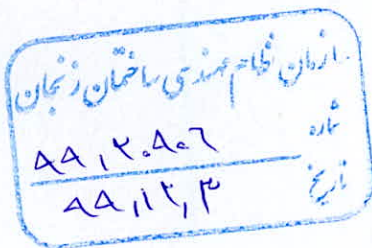 سازمان نظام مهندسی ساختمان زنجان
شماره ۸۸,۲۰۸۰۶
تاریخ ۸۸,۱۲,۳